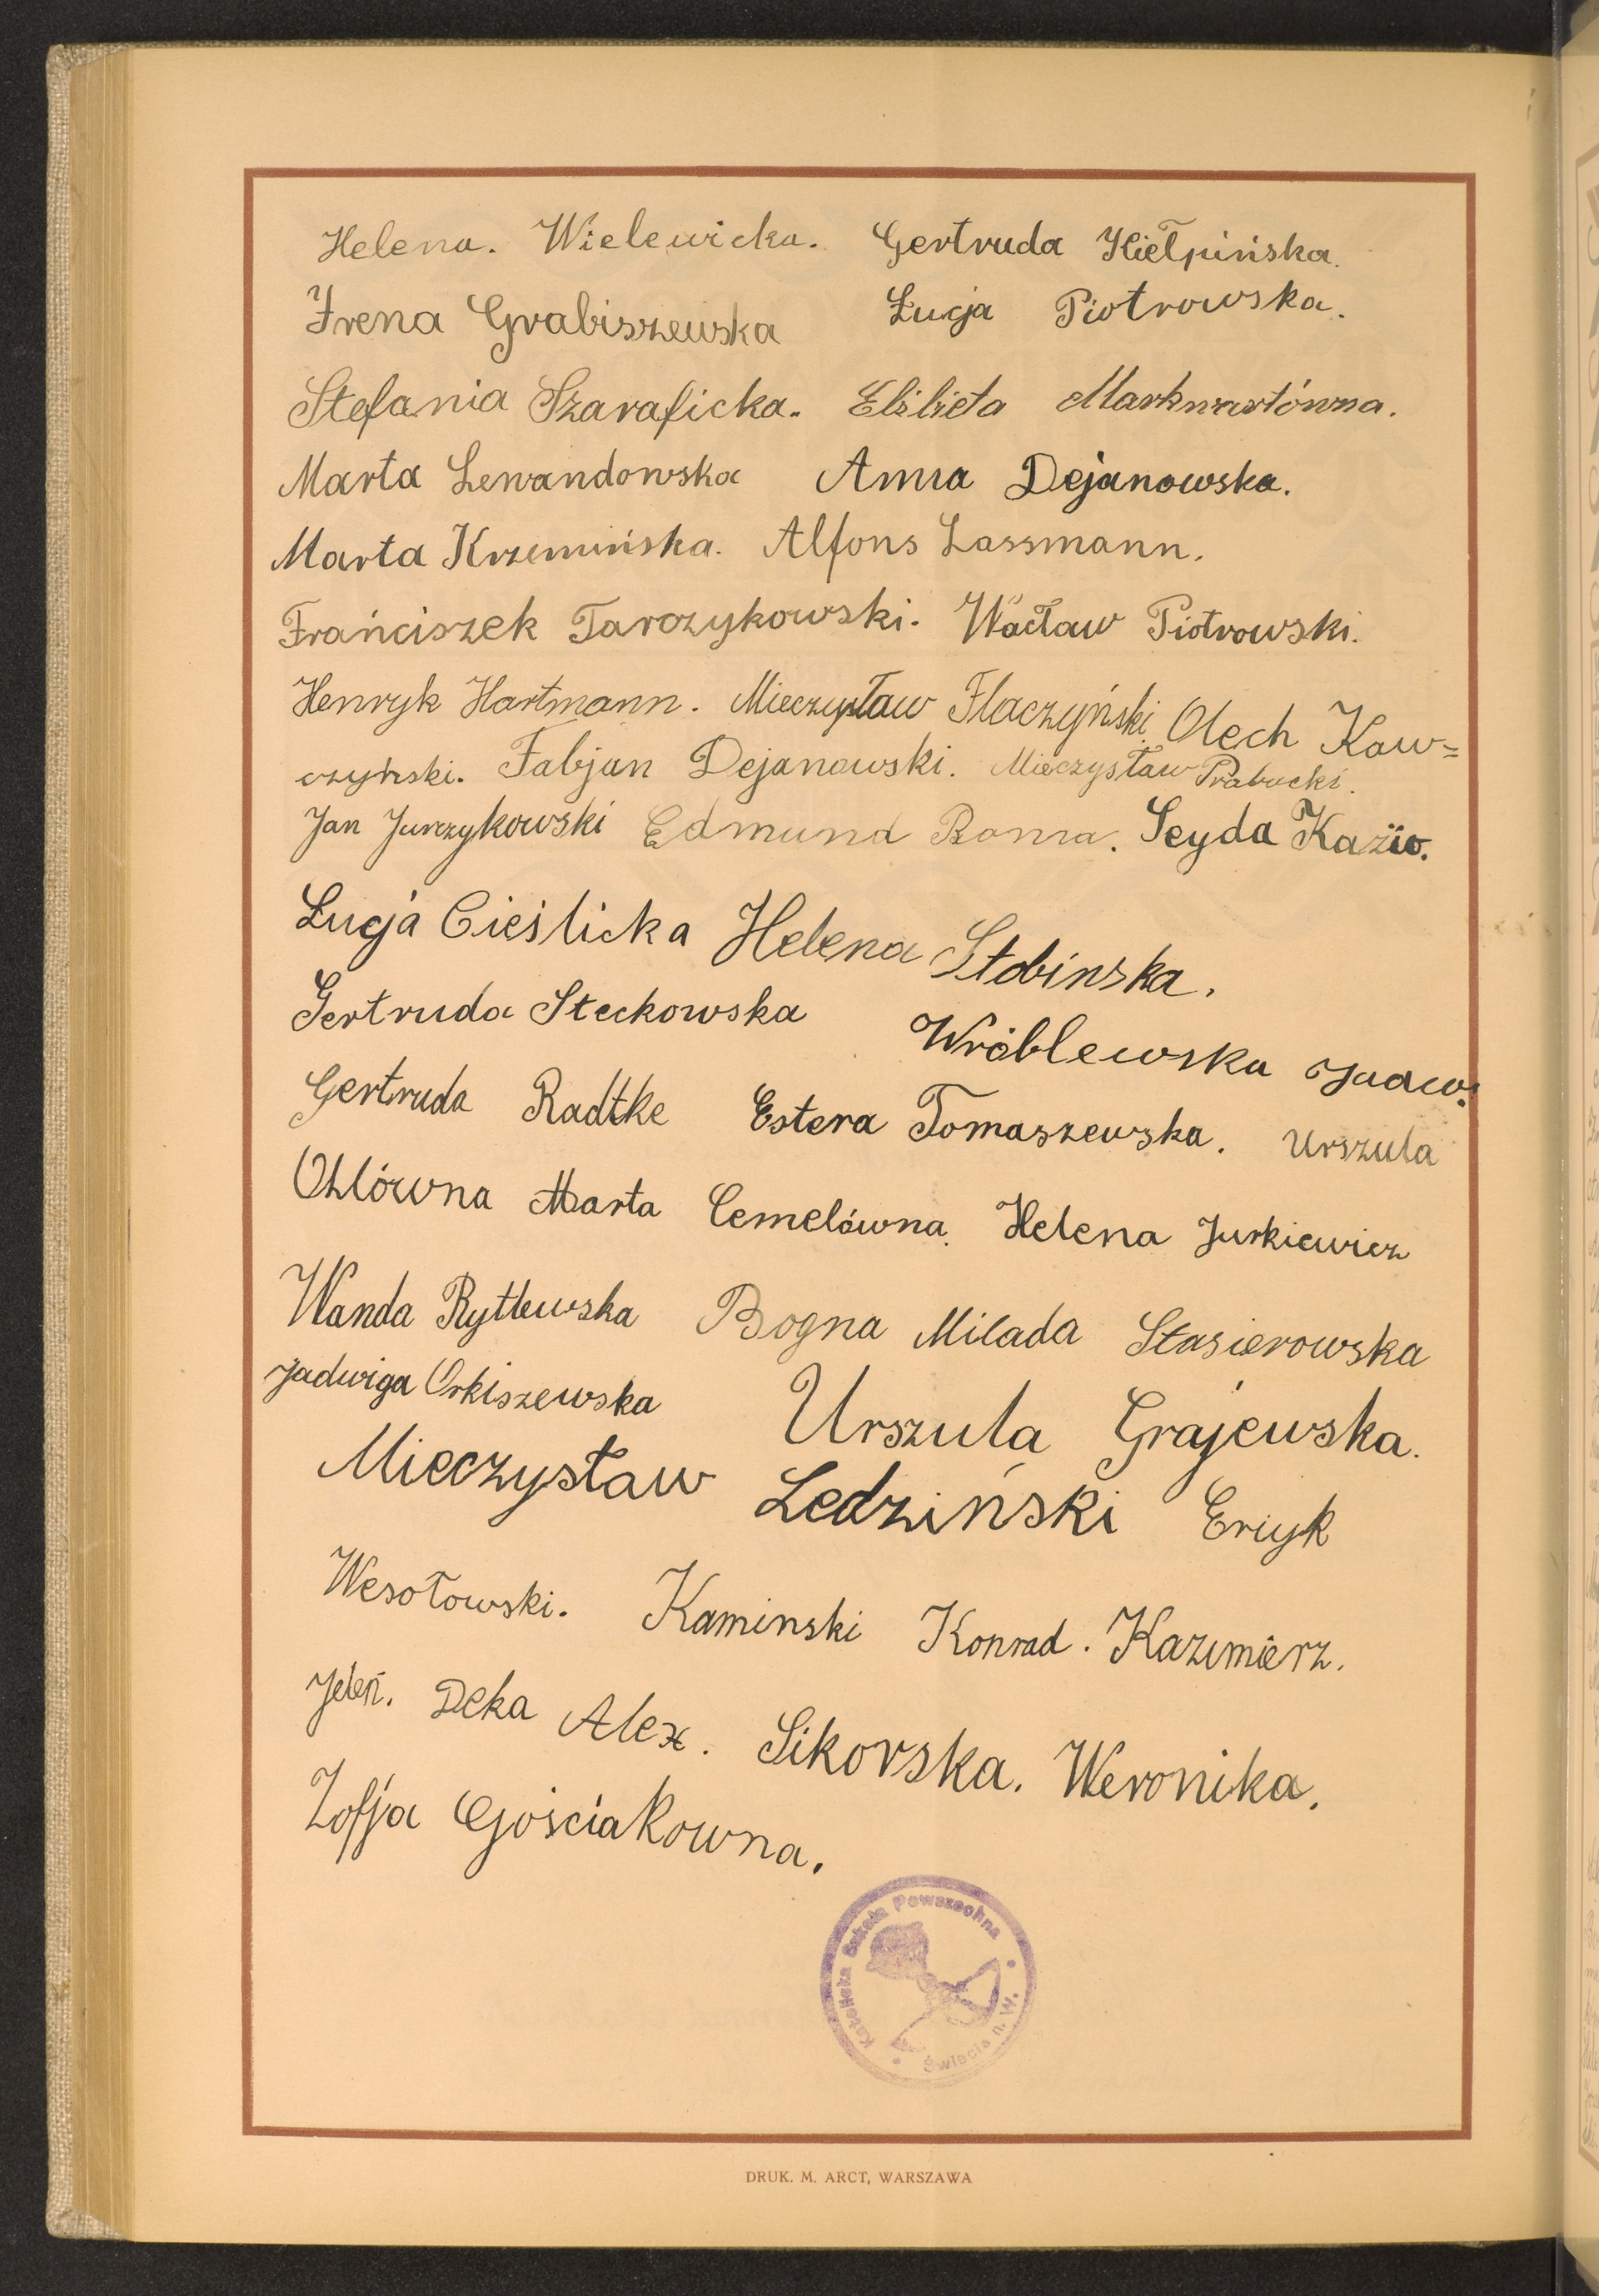 Helena. Wielewicka. Gertruda Kiełpińska.
Irena Grabiszewska Łucja Piotrowska.
Stefania Szaraficka. Elżbieta Markwartówna.
Marta Lewandowska Anna Dejanowska.
Marta Krzemińska. Alfons Lassmann.
Frańciszek Tarczykowski. Wacław Piotrowski.
Henryk Hartmann. Mieczysław Flaczyński. Olech Kaw=
czyński. Fabjan Dejanowski. Mieczysław Prabucki.
Jan Jurczykowski Edmund Boma. Seyda Kazio.
Łucja Cieślicka Helena Stobinska.
Gertruda Steckowska Wróblewska
Gertruda Radtke Estera Tomaszewska. Urszula
Ohlówna Marta Cemelówna. Helena Jurkiewicz
Wanda Rytlewska Bogna Milada Stasierowska
Jadwiga Orkiszewska Urszula Grajewska.
Mieczysław Ledziński Eryk
Wesołowski. Kaminski Konrad. Kazimierz.
Jeleń. Deka Alex. Sikorska. Weronika.
Zofja Gościakowna.
Katolicka Szkoła Powszechna
Świecie n. W.
DRUK. M. ARCT, WARSZAWA